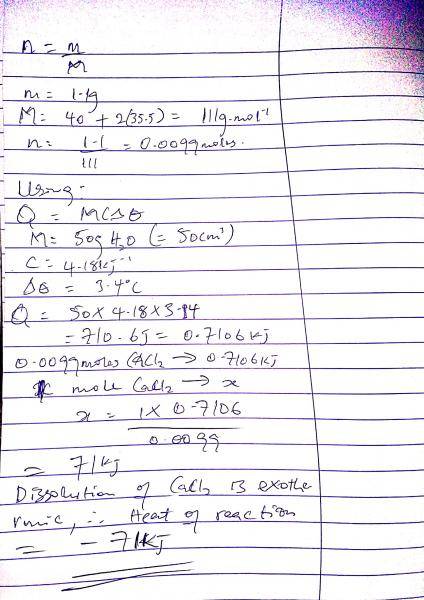 n = m
M
m = 1.1g
M = 40 + 2(35.5) = 111g.mol⁻¹
n = 1.1 = 0.0099moles.
111
Using -
Q = MCΔθ
M = 50g H₂O (= 50cm³)
C = 4.18kj⁻¹
Δθ = 3.4°C
Q = 50 × 4.18 × 3.4
= 710.6J = 0.7106kJ
0.0099moles CaCl₂ → 0.7106kJ
1 mole CaCl₂ → x
x = 1 × 0.7106
0.0099
= 71kJ
Dissolution of CaCl₂ is exothe
rmic, ∴ Heat of reaction
= -71kJ